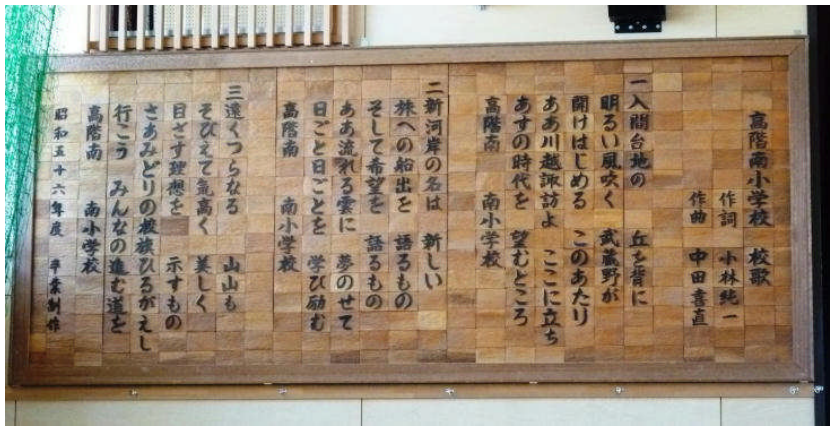 高階南小学校 校歌
作詞 小林純一
作曲 中田喜直
一入間台地の 丘を背に
明るい風吹く 武蔵野が
開けはじめる このあたり
ああ川越諏訪よ ここに立ち
あすの時代を 望むところ
高階南 南小学校
二新河岸の名は 新しい
旅への船出を 語るもの
そして希望を 語るもの
ああ流れる雲に 夢のせて
日ごと日ごとを 学び励む
高階南 南小学校
三遠くつらなる 山山も
そびえて気高く 美しく
目ざす理想を 示すもの
さあみどりの校旗ひるがえし
行こう みんなの進む道を
高階南 南小学校
昭和五十六年度 卒業制作